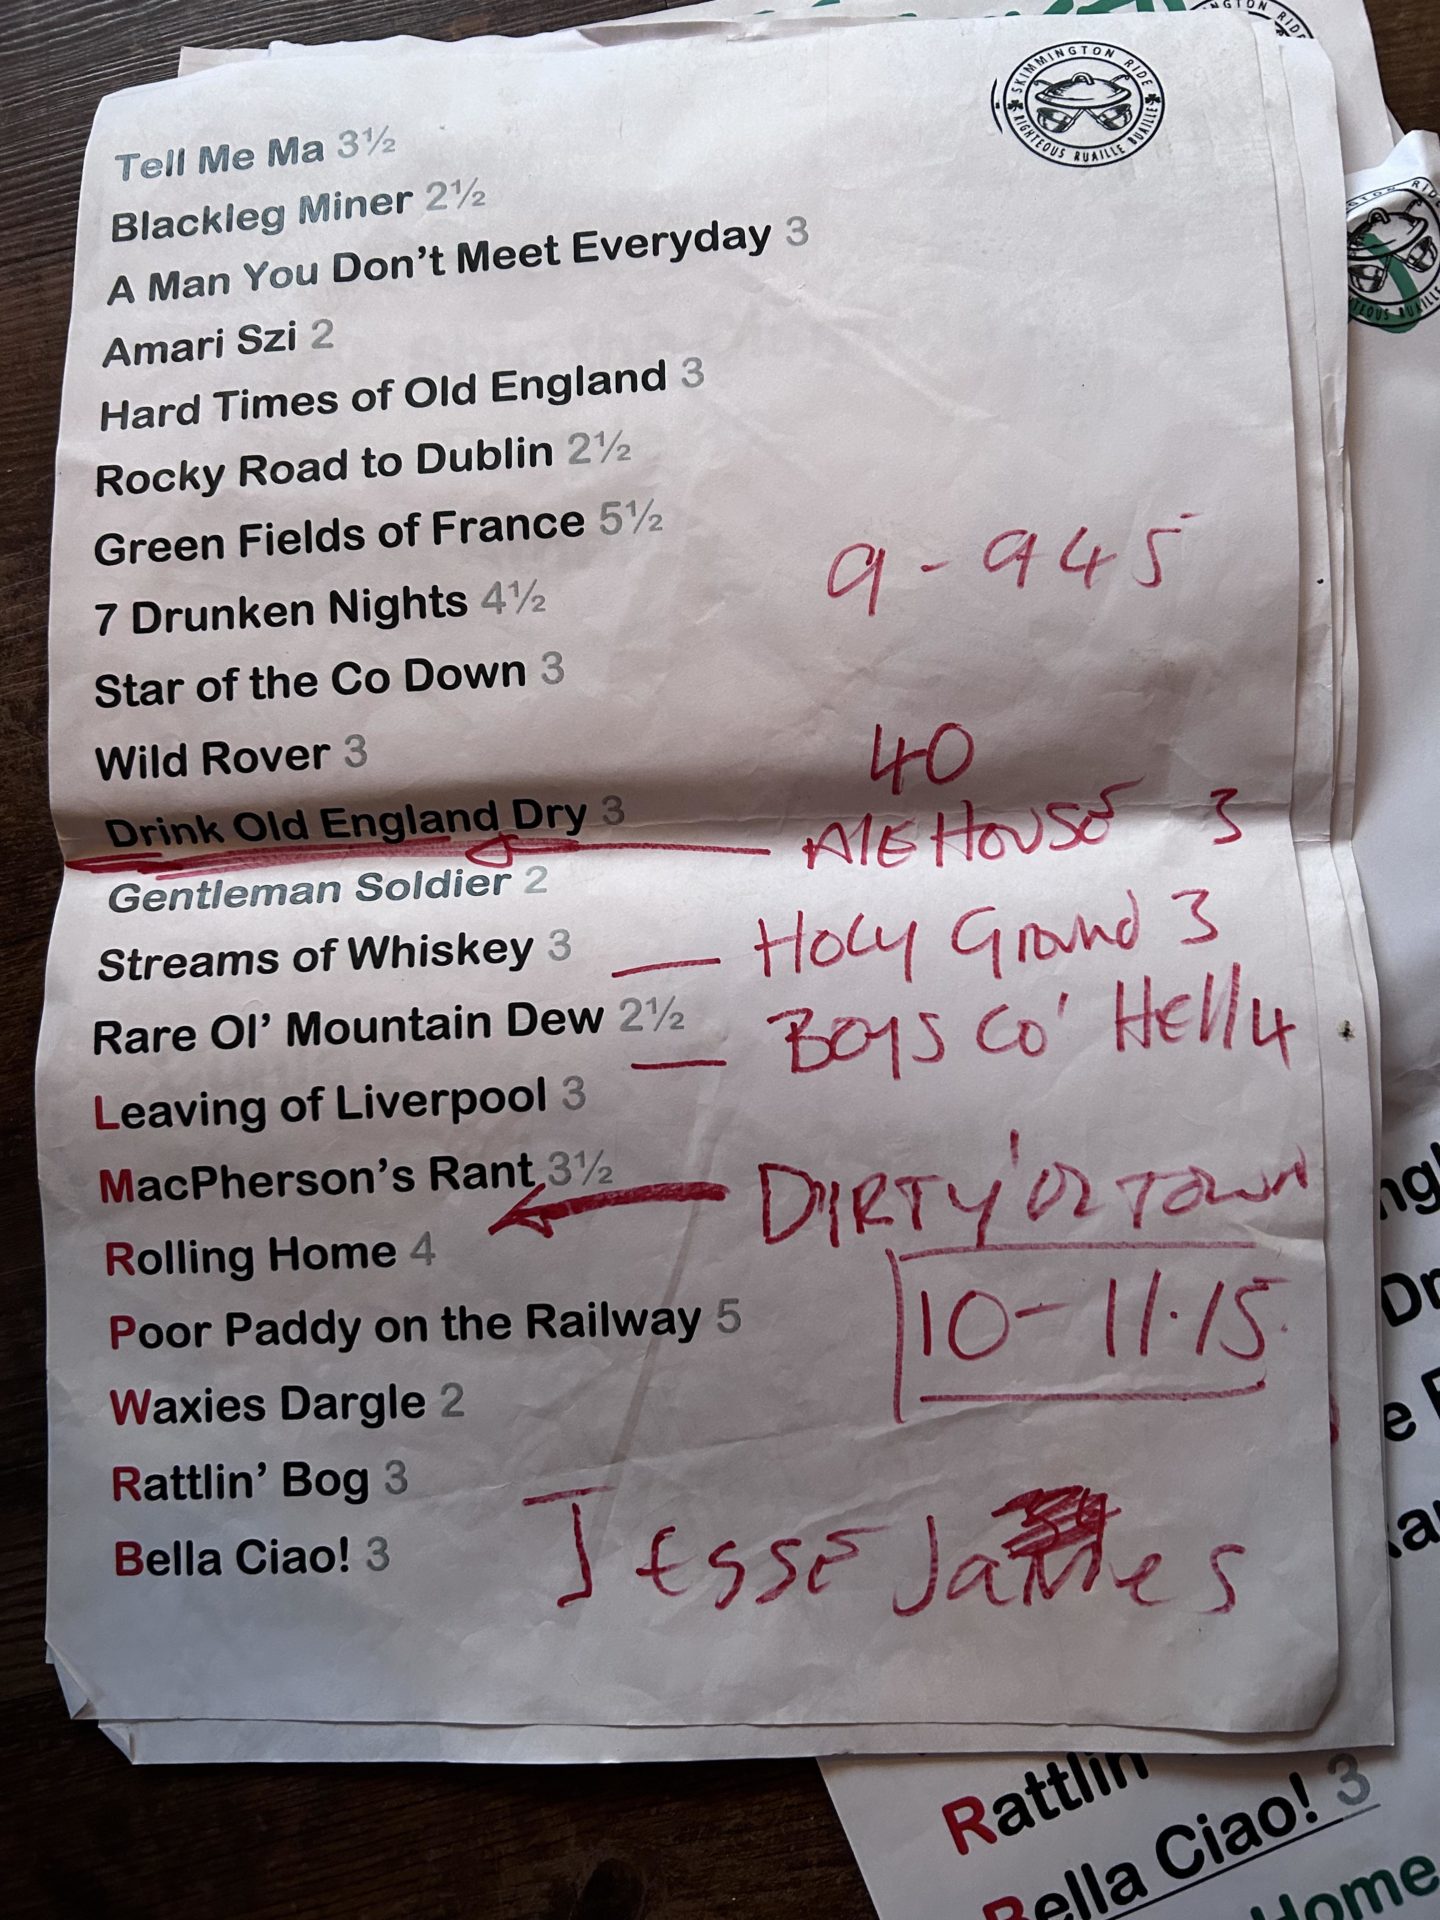 SKIMMINGTON RIDE
RIGHTEOUS RUAILLE BUAILLE
Tell Me Ma 3½
Blackleg Miner 2½
A Man You Don't Meet Everyday 3
Amari Szi 2
Hard Times of Old England 3
Rocky Road to Dublin 2½
Green Fields of France 5½
9 - 945
7 Drunken Nights 4½
Star of the Co Down 3
Wild Rover 3
40
Drink Old England Dry 3
AlEHOUSE 3
Gentleman Soldier 2
Streams of Whiskey 3
Holy Ground 3
Rare Ol' Mountain Dew 2½
BOYS Co' HEll 4
Leaving of Liverpool 3
MacPherson's Rant 3½
DIRTY Ol TOWN
Rolling Home 4
10 - 11.15
Poor Paddy on the Railway 5
Waxies Dargle 2
Rattlin' Bog 3
JESSE James
Bella Ciao! 3
Rattlin'
Bella Ciao! 3
Home